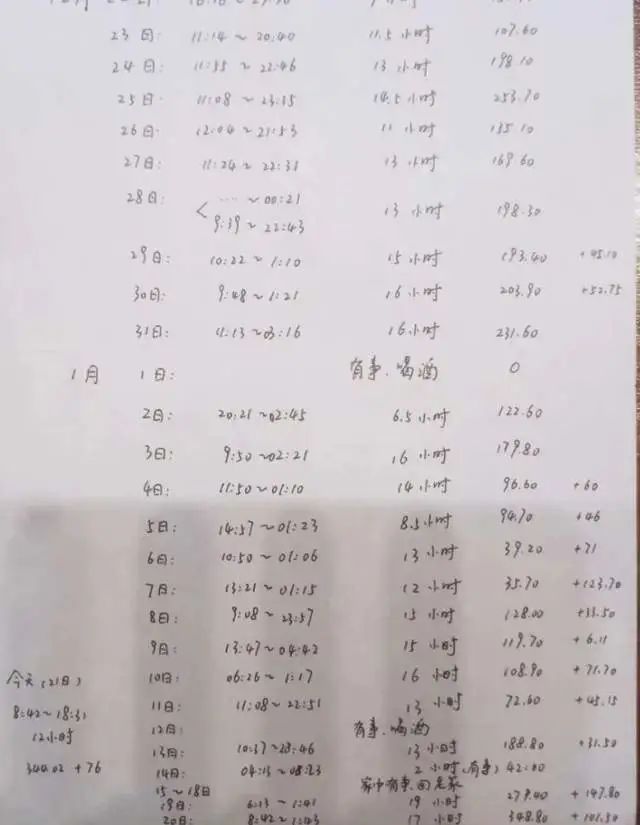 23日: 11:14~20:40 11.5小时 107.60
24日: 11:55~22:46 13小时 198.10
25日: 11:08~23:35 14.5小时 253.70
26日: 12:04~21:53 11小时 135.10
27日: 11:24~22:31 13小时 169.60
28日: < ...~00:21
9:39~22:43 13小时 198.30
29日: 10:22~1:10 15小时 193.40 +45.10
30日: 9:48~1:21 16小时 203.90 +52.75
31日: 11:13~03:16 16小时 231.60
1月 1日: 有事、喝酒 0
2日: 20:21~02:45 6.5小时 122.60
3日: 9:50~02:21 16小时 179.80
4日: 11:50~01:10 14小时 96.60 +60
5日: 14:57~01:23 8.5小时 94.70 +46
6日: 10:50~01:06 13小时 39.20 +71
7日: 13:21~01:15 12小时 35.70 +123.70
8日: 9:08~23:57 15小时 128.00 +33.50
9日: 13:47~04:42 15小时 119.70 +6.11
10日: 06:26~1:17 16小时 108.90 +71.70
11日: 11:08~22:51 13小时 72.60 +45.15
12日: 有事、喝酒
13日: 10:37~23:46 13小时 188.80 +31.50
14日: 04:13~08:23 2小时(有事) 42.00
15~18日 家中有事回老家
19日: 6:13~1:41 19小时 279.40 +147.80
20日: 8:42~1:43 17小时 348.80 +101.50
今天(21日)
8:42~18:31
12小时
344.02 +76